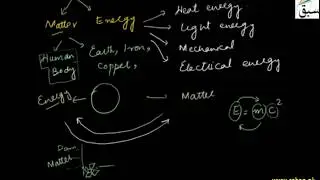 Heat energy
Matter Energy
Light energy
Human Body
Earth, Iron,
Copper,
Mechanical
Electrical energy
Energy
Matter
E = m C²
Matter
سبق